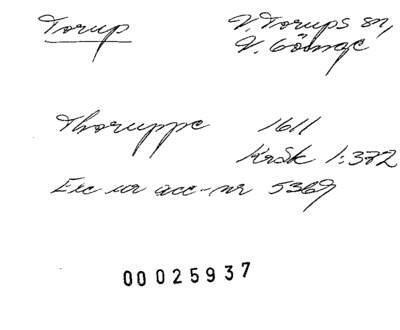 Torup V. Torups sn,
V. Göinge
Thoruppe 1611
KrSk 1:372
Exc ur acc-nr 5369
00025937